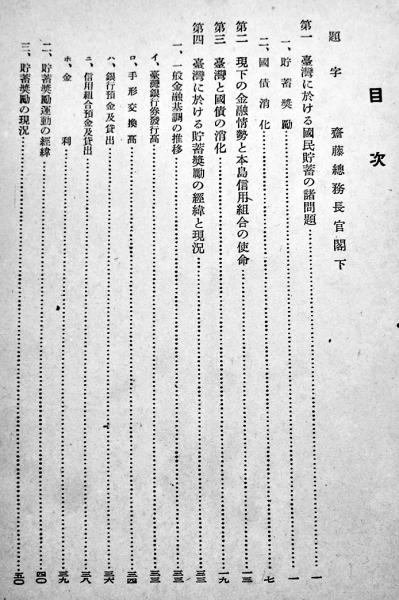 目次
題字 齋藤總務長官閣下
第一 臺灣に於ける國民貯蓄の諸問題……一
一、貯蓄奬勵……一
二、國債消化……七
第二 現下の金融情勢と本島信用組合の使命……一三
第三 臺灣と國債の消化……一九
第四 臺灣に於ける貯蓄奬勵の經緯と現況……三三
一、一般金融基調の推移……三三
イ、臺灣銀行券發行高……三三
ロ、手形交換高……三四
ハ、銀行預金及貸出……三六
ニ、信用組合預金及貸出……三八
ホ、金利……三九
二、貯蓄奬勵運動の經緯……四〇
三、貯蓄奬勵の現況……五〇